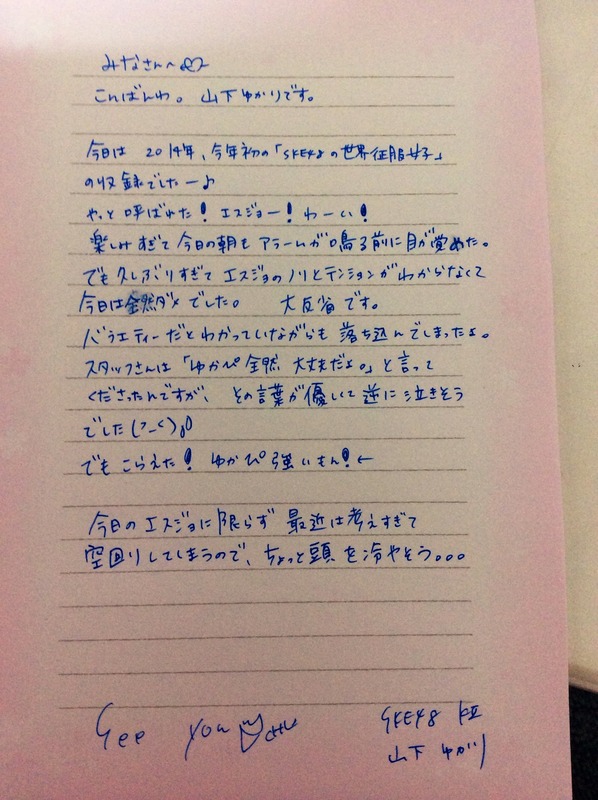 みなさんへ♡
こんばんわ。山下ゆかりです。
今日は 2014年、今年初の「SKE48の世界征服女子」
の収録でしたー♪
やっと呼ばれた!エスジョー!わーい!
楽しみすぎて今日の朝もアラームが鳴る前に目が覚めた。
でも久しぶりすぎてエスジョのノリとテンションがわからなくて
今日は全然ダメでした。 大反省です。
バラエティーだとわかっていながらも落ち込んでしまったよ。
スタッフさんは「ゆかぴ全然大丈夫だよ。」と言って
くださったんですが、その言葉が優しくて逆に泣きそう
でした(>_<)
でもこらえた!ゆかぴ強いもん!←
今日のエスジョに限らず最近は考えすぎて
空回りしてしまうので、ちょっと頭を冷やそう。。。
See you
SKE48 KII
山下 ゆかり